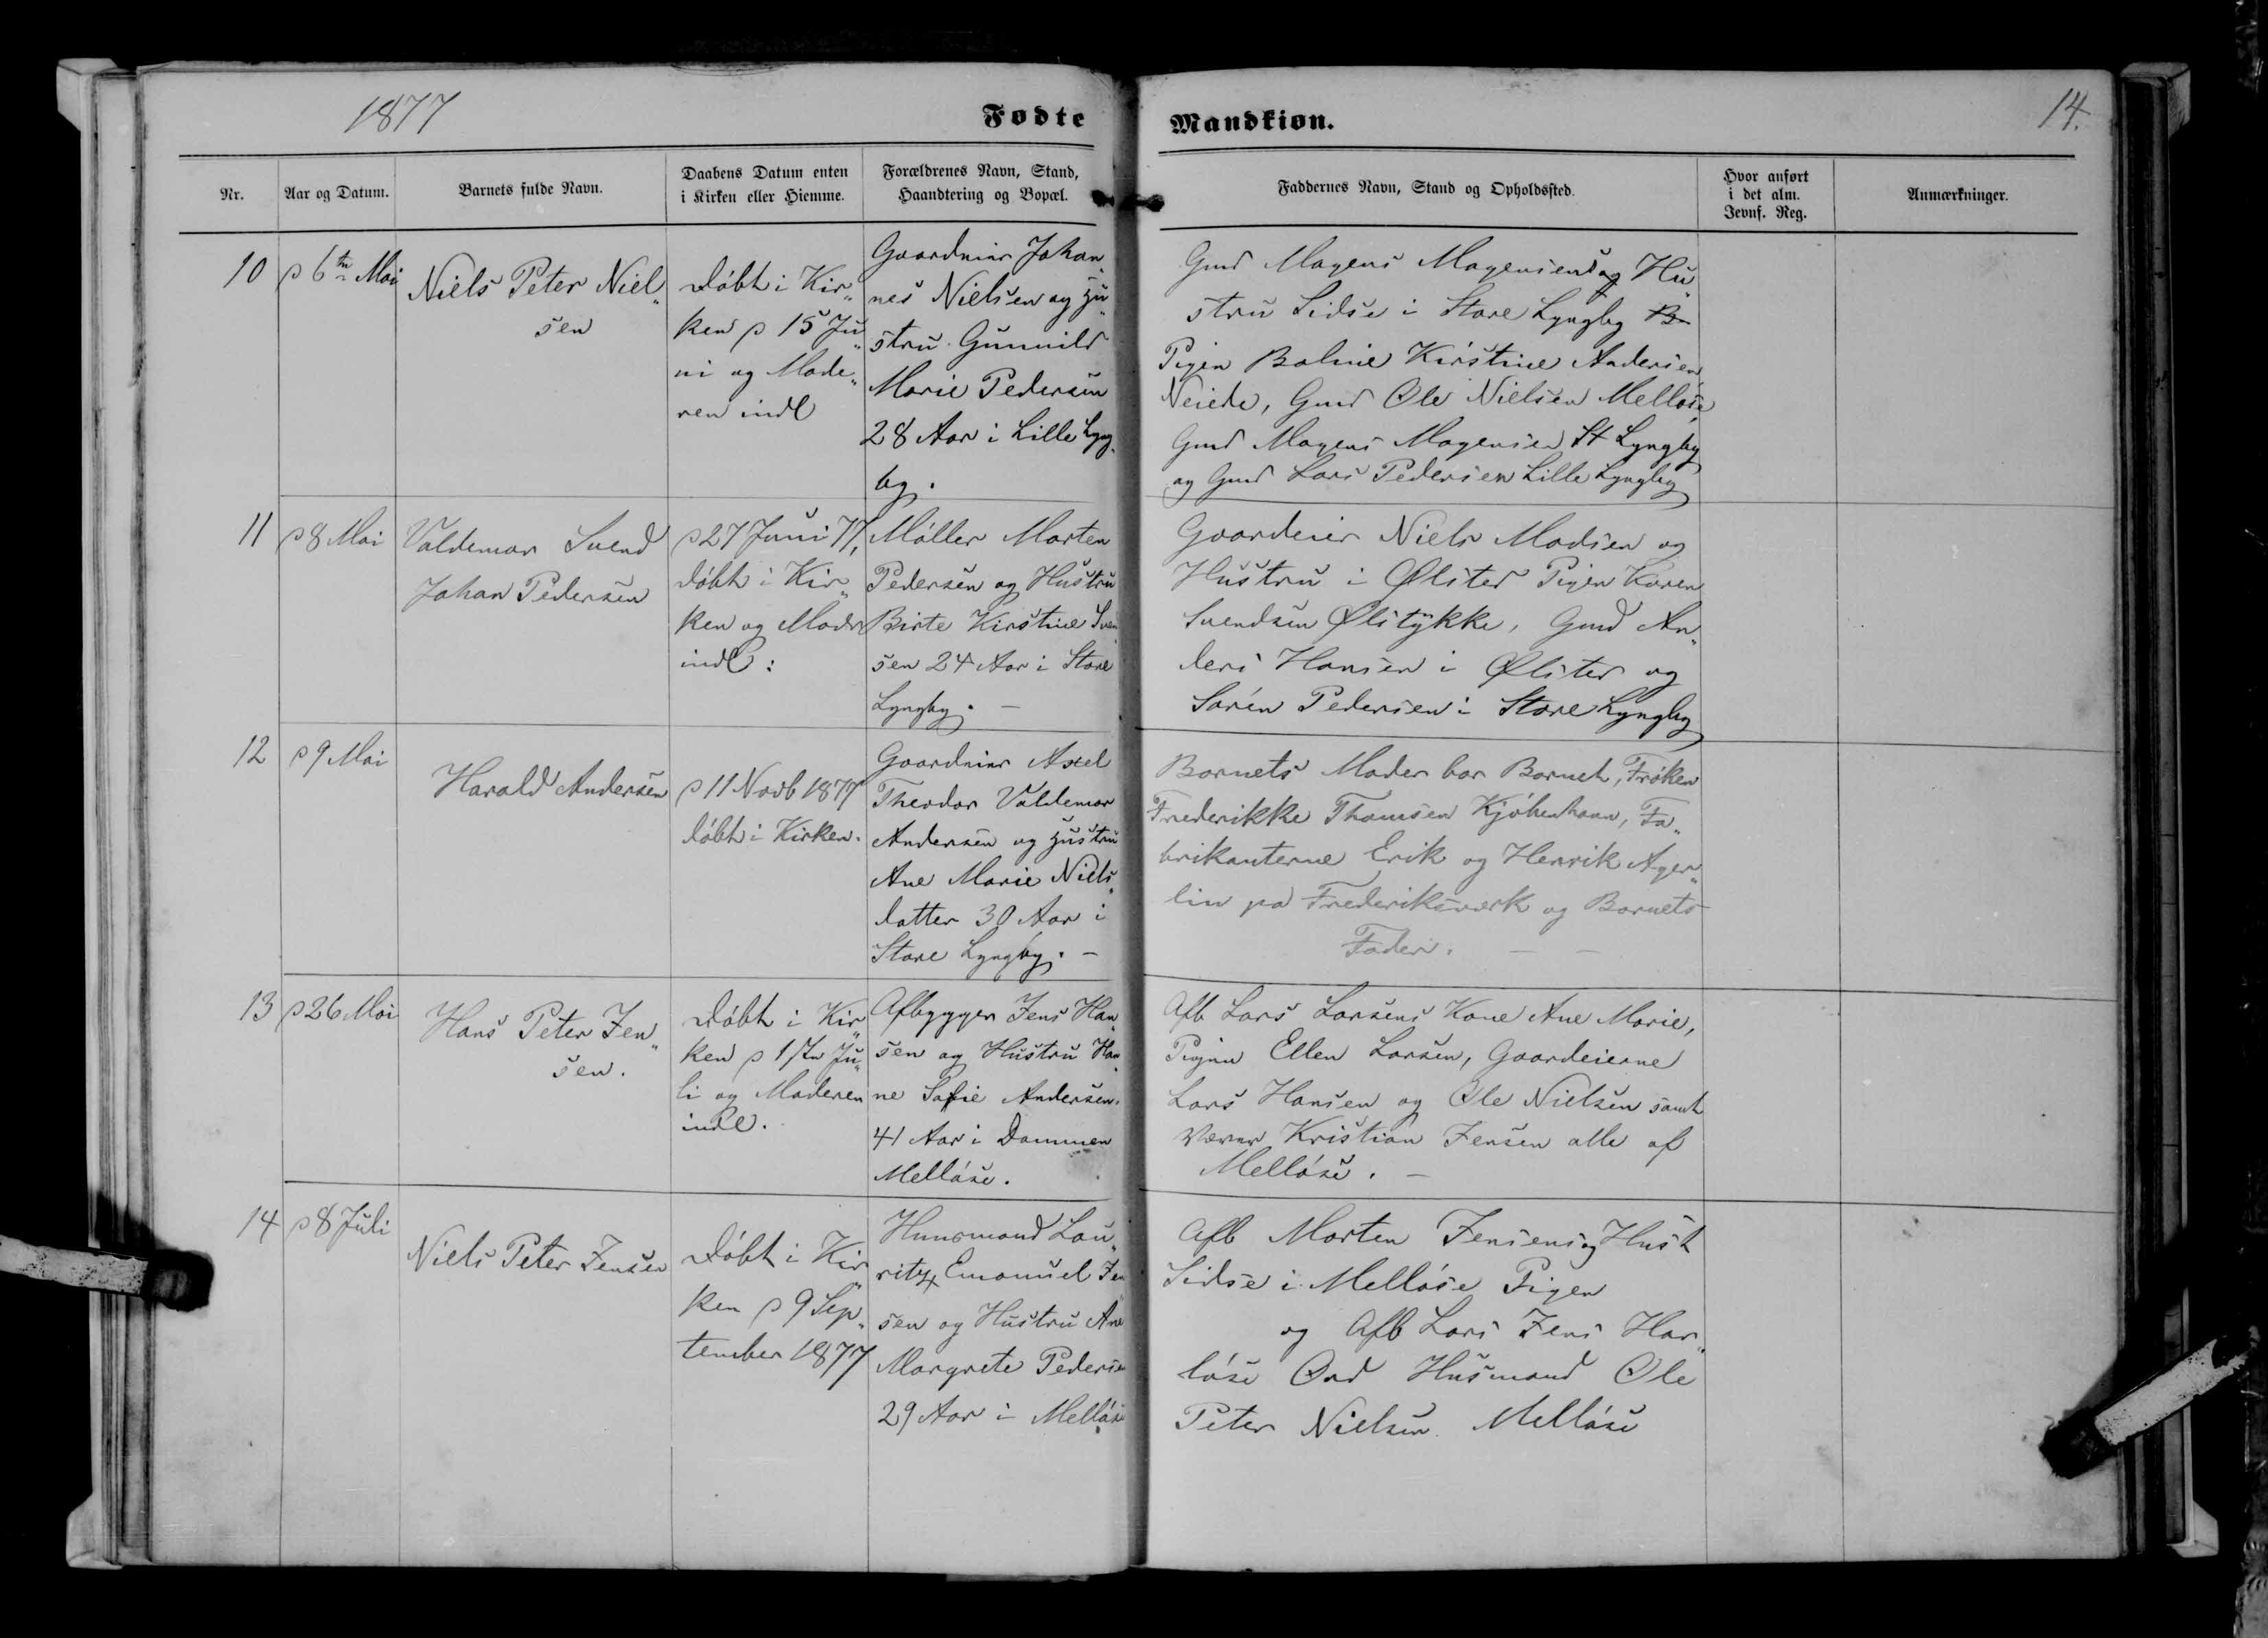 1877
Fødte
Mandkiøn.
14.
Nr.
Aar og Datum.
Barnets fulde Navn.
Daabens Datum enten
i Kirken eller Hiemme.
Forældrenes Navn, Stand,
Haandtering og Bopæl.
Faddernes Navn, Stand og Opholdssted.
Hvor anført
i det alm.
Jevnf. Reg.
Anmærkninger.
10
6te Mai
Niels Peter Niel„
sen
Døbt i Kir„
ken 15 Ju„
ni og Mode„
ren indl
Gaardeier Johan„
nes Nielsen og Hu„
stru Gunnild
Marie Pedersen
28 Aar i Lille Lyng„
by.
Gmd Mogens Mogensens og Hu„
stru Sidse i Store Lyngby
Pigen Boline Kirstine Andersen
Neiede, Gmd Ole Nielsen Melløse
Gmd Mogens Mogensen St Lyngby
og Gmd Lars Pedersen Lille Lyngby
11
8 Mai
Valdemar Svend
Johan Pedersen
27 Juni 77,
døbt i Kir„
ken og Moder
indl:
Møller Morten
Pedersen og Hustru
Birte Kirstine Sven„
sen 24 Aar i Store
Lyngby. —
Gaardeier Niels Madsen og
Hustru i Ølsted Pigen Karen
Svendsen Ølstykke, Gmd An„
ders Hansen i Ølsted og
Søren Pedersen i Store Lyngby
12
9 Mai
Harald Andersen
11 Novb 1877
døbt i Kirken.
Gaardeier Axel
Theodor Valdemar
Andersen og Hustru
Ane Marie Niels„
datter 30 Aar i
Store Lyngby. —
Barnets Moder bar Barnet, Frøken
Frederikke Thomsen Kjøbenhavn, Fa„
brikanterne Erik og Henrik Ager„
lin pa Frederiksværk og Barnets
Fader. — —
13
26 Mai
Hans Peter Jen„
sen.
Døbt i Kir„
ken 1ste Ju„
li og Moderen
indl.
Afbygger Jens Han„
sen og Hustru Han„
ne Sofie Andersen.
41 Aar i Dammen
Melløse.
Afb Lars Larsens Kone Ane Marie,
Pigen Ellen Larsen, Gaardeierne
Lars Hansen og Ole Nielsen samt
Væver Kristian Jensen alle af
Melløse. —
14
8 Juli
Niels Peter Jensen
Døbt i Kir„
ken 9 Sep„
tember 1877
Huusmand Lau„
ritz Emanuel Jen„
sen og Hustru Ane
Margrete Pedersen
29 Aar i Melløse
Afb Morten Jensens og Hust
Sidse i Melløse Pigen
og Afb Lars Jens Har„
løse Husmand Ole
Peter Nielsen Melløse